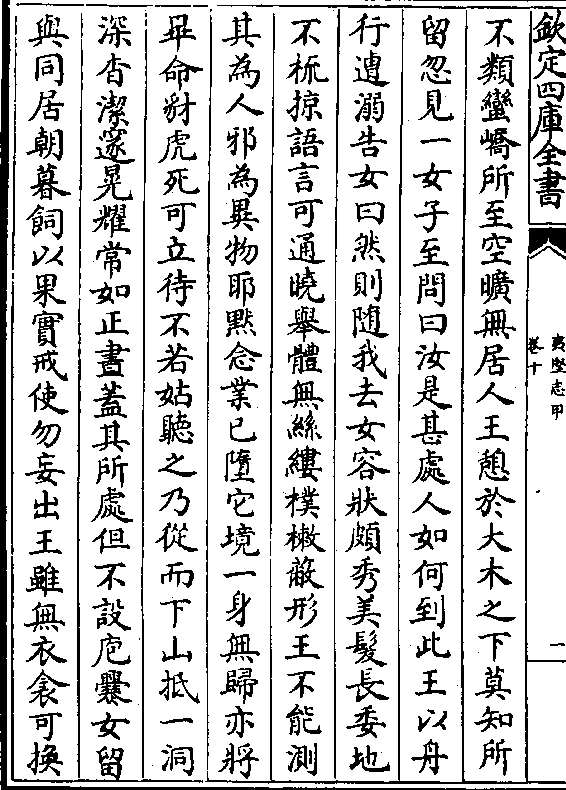 欽定四庫全書
夷堅志甲
卷十
一
不類蠻嶠所至空曠無居人王憩於大木之下莫知所
留忽見一女子至問曰汝是甚處人如何到此王以舟
行遭溺告女曰然則隨我去女容狀頗秀美髮長委地
不梳掠語言可通曉舉體無絲縷樸樕蔽形王不能測
其為人邪為異物耶黙念業已墮它境一身無歸亦將
畢命豺虎死可立待不若姑聽之乃從而下山抵一洞
深杳潔邃晃耀常如正晝蓋其所處但不設庖爨女留
與同居朝暮飼以果實戒使勿妄出王雖無衣衾可換